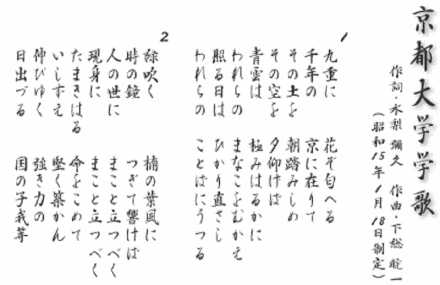 京都大学学歌
作詞・水梨彌久 作曲・下総皖一
(昭和15年1月18日制定)
1
九重に 花ぞ匂へる
千年の 京に在りて
その土を 朝踏みしめ
その空を 夕仰げば
青雲は 極みはるかに
われらの まなこをむかえ
照る日は ひかり直さし
われらの ことばにうつる
2
緑吹く 楠の葉風に
時の鐘 つぎて響けば
人の世に まこと立つべく
現身に まこと立つべく
たまきはる 命をこめて
いしずえ 堅く築かん
伸びゆく 強き力の
日出づる 国の子我等